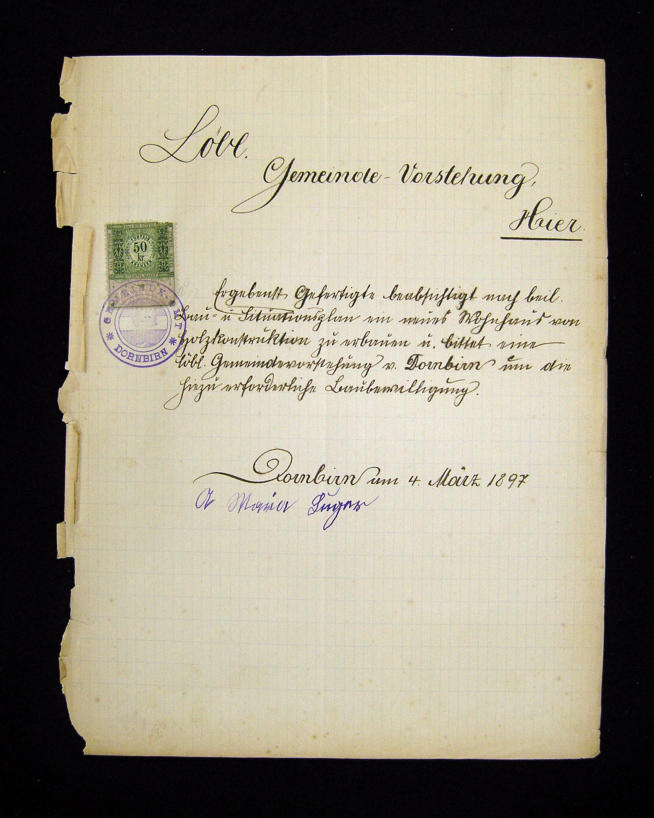 Löbl.
Gemeinde-Vorstehung,
Hier.
50
kr
GEMEINDEAMT
* DORNBIRN *
Ergebenst Gefertigte beabsichtigt nach beil.
Bau- u. Situationsplan ein neues Wohnhaus von
Holzkonstruktion zu erbauen u. bittet eine
löbl. Gemeindevorstehung v. Dornbirn um die
hiezu erforderliche Baubewilligung.
Dornbirn am 4. März 1897
Maria Luger